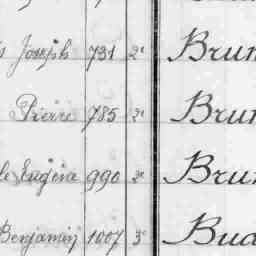 Joseph 731 2e Brun
Pierre 785 2e Brun
Eugène 990 2e Brun
Benjamin 1007 3e Bud